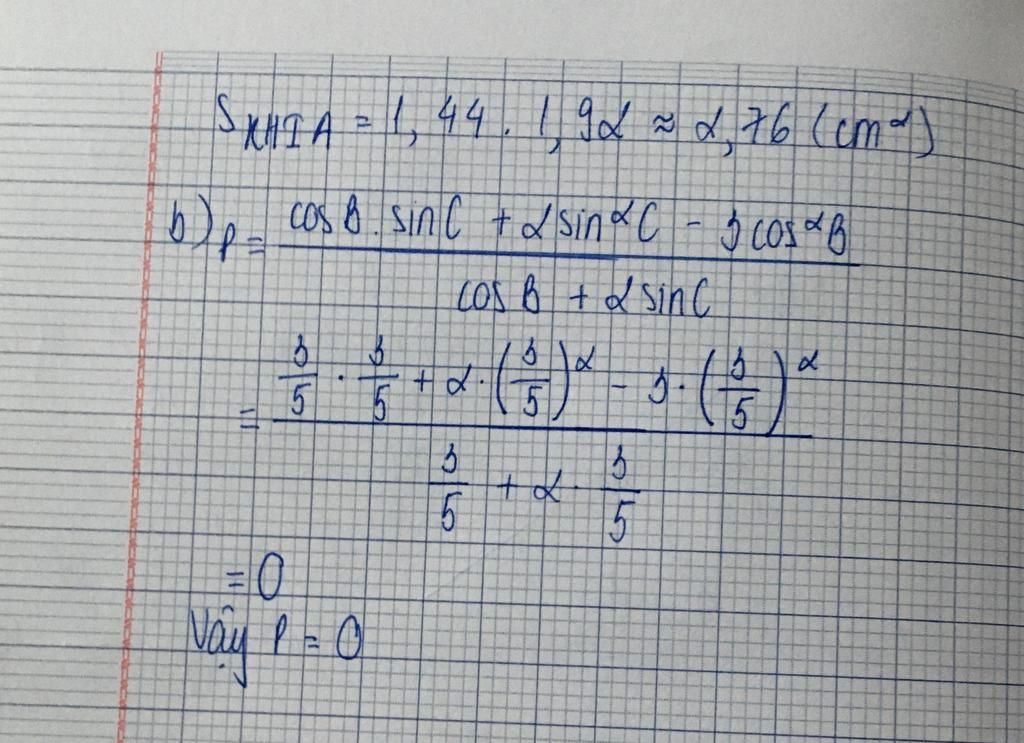 S_KHIA = 1,44 . 1,92 ≈ 2,76 (cm²)
b) P = \frac{cosB . sinC + 2sin²C - 3cos²B}{cosB + 2sinC}
= \frac{\frac{3}{5} . \frac{3}{5} + 2.(\frac{3}{5})² - 3.(\frac{3}{5})²}{\frac{3}{5} + 2 . \frac{3}{5}}
= 0
Vậy P = 0